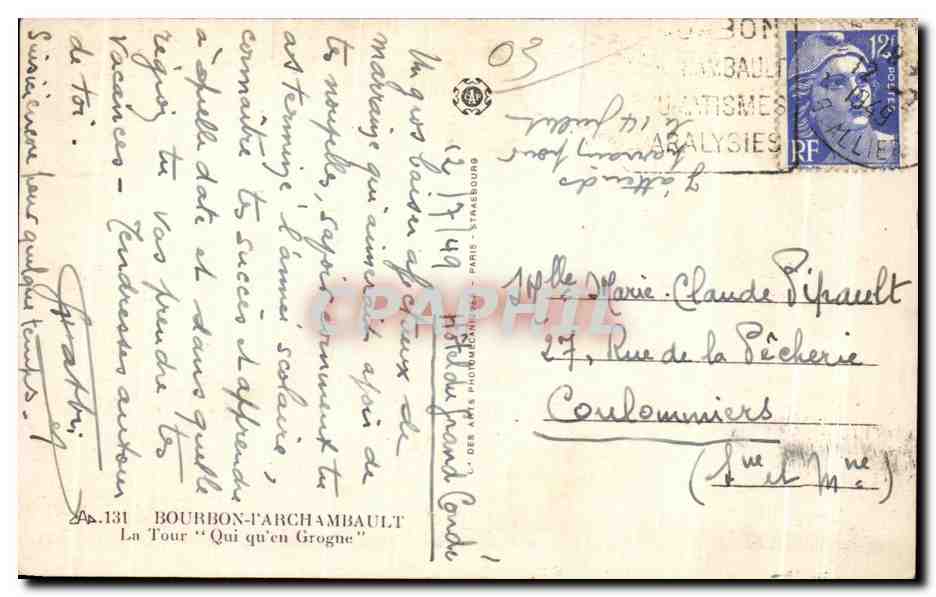 12/7/49 Hôtel du Grand Condé
Un gros baiser affectueux de
marraine qui aimerait avoir de
tes nouvelles, savoir comment tu
as terminé l'année scolaire,
connaître tes succès et apprendre
à quelle date et dans quelle
région tu vas prendre tes
vacances - Tendresses autour
de toi.
Suis ici encore pour quelque temps.
J'attends
parrain pour
le 14 Juillet
03
CAP
BOURBON
ARCHAMBAULT
RHUMATISMES
PARALYSIES
12F
POSTES
RF
12
1949
ALLIER
Mlle Marie-Claude Pipault
27, Rue de la Pêcherie
Coulommiers
(Sne et Mne)
DES ARTS PHOTOMECANIQUES - PARIS - STRASBOURG
CPAPHIL
131 BOURBON-l'ARCHAMBAULT
La Tour "Qui qu'en Grogne"